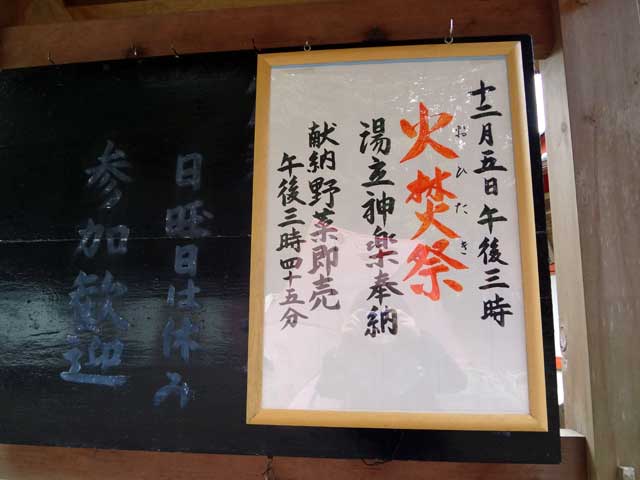 十二月五日午後三時
火焚祭
おひたき
湯立神楽奉納
献納野菜即売
午後三時四十五分
日曜日は休み
参加歓迎